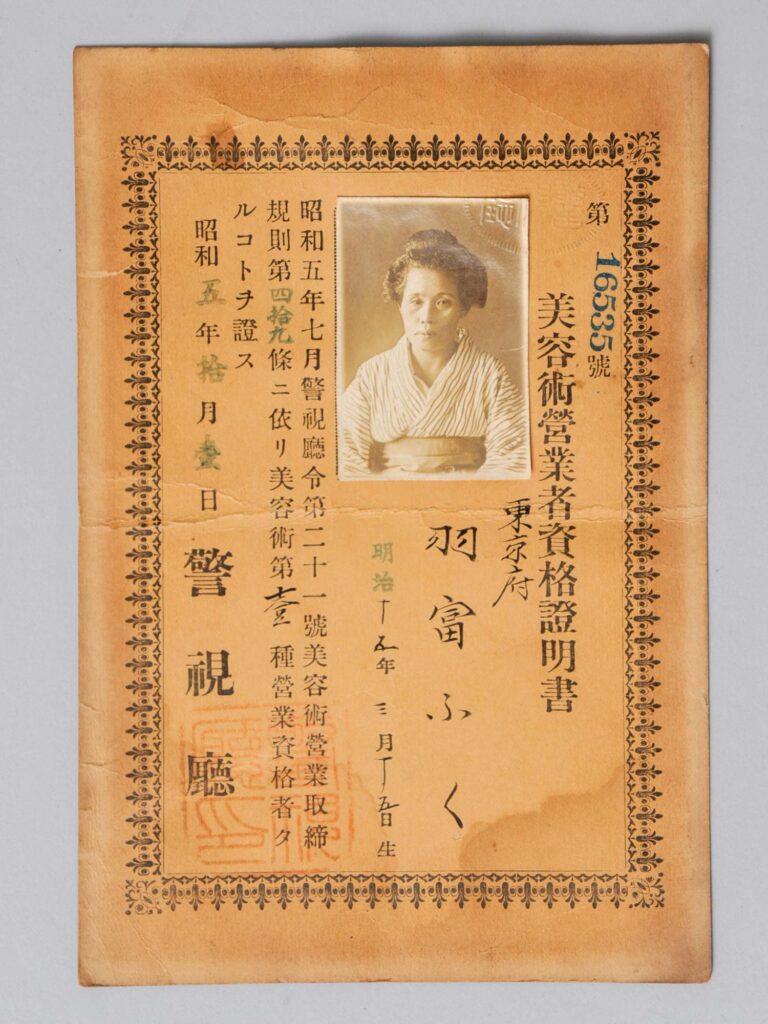 第16535號
美容術營業者資格證明書
東京府
羽富ふく
明治十五年三月十五日生
昭和五年七月警視廳令第二十一號美容術營業取締
規則第四拾九條ニ依リ美容術第壹種營業資格者タ
ルコトヲ證ス
昭和五年拾月壹日
警視廳